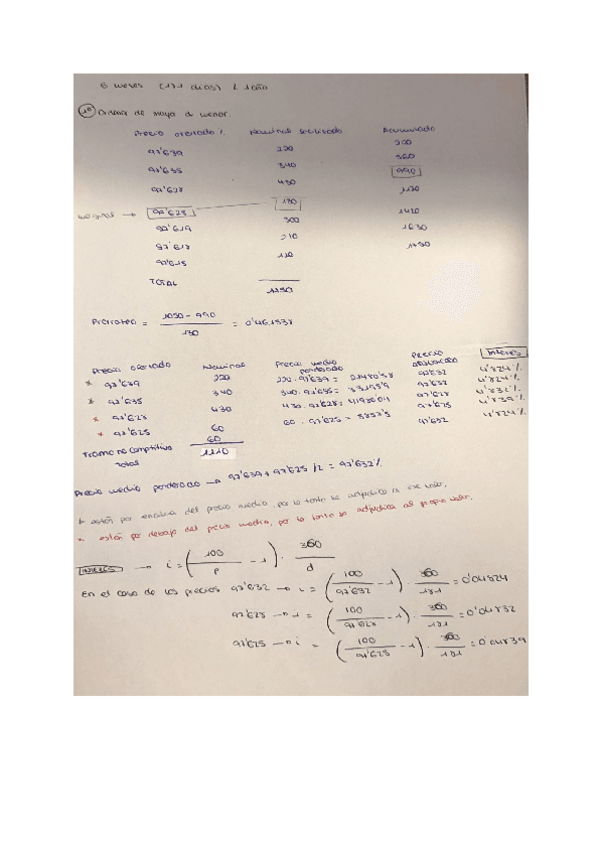 6 meses (181 dias) < 1 año
1º Ordenar de mayor a menor.
Precio ofertado % Nominal solicitado Acumulado
97'639 220 220
97'635 340 560
97'628 430 990
97'625 130 1120
97'619 300 1420
97'618 210 1630
97'615 120
TOTAL
Prorrateo = 1050 - 990 / 130 = 0'461538
Precio ofertado Nominal Precio medio ponderado Precio Interes
* 97'639 220 220 . 97'639 = 97'632 4'824%
* 97'635 340 340 . 97'635 = 97'632 4'824%
* 97'628 430 430 . 97'628 = 97'628 4'832%
* 97'625 60 60 . 97'625 = 97'625 4'839%
Tramo no competitivo 60 97'632 4'824%
Total 1110
Precio medio ponderado → 97'639 + 97'625 /2 = 97'632%
* están por encima del precio medio, por lo tanto se adjudica a ese valor.
* están por debajo del precio medio, por lo tanto se adjudica al propio valor.
→ i = (100 / P - 1) . 360 / d
En el caso de los precios 97'632 → i = (100 / 97'632 - 1) . 360 / 181 = 0'04824
97'628 → i = (100 / 97'628 - 1) . 360 / 181 = 0'04832
97'625 → i = (100 / 97'625 - 1) . 360 / 181 = 0'04839